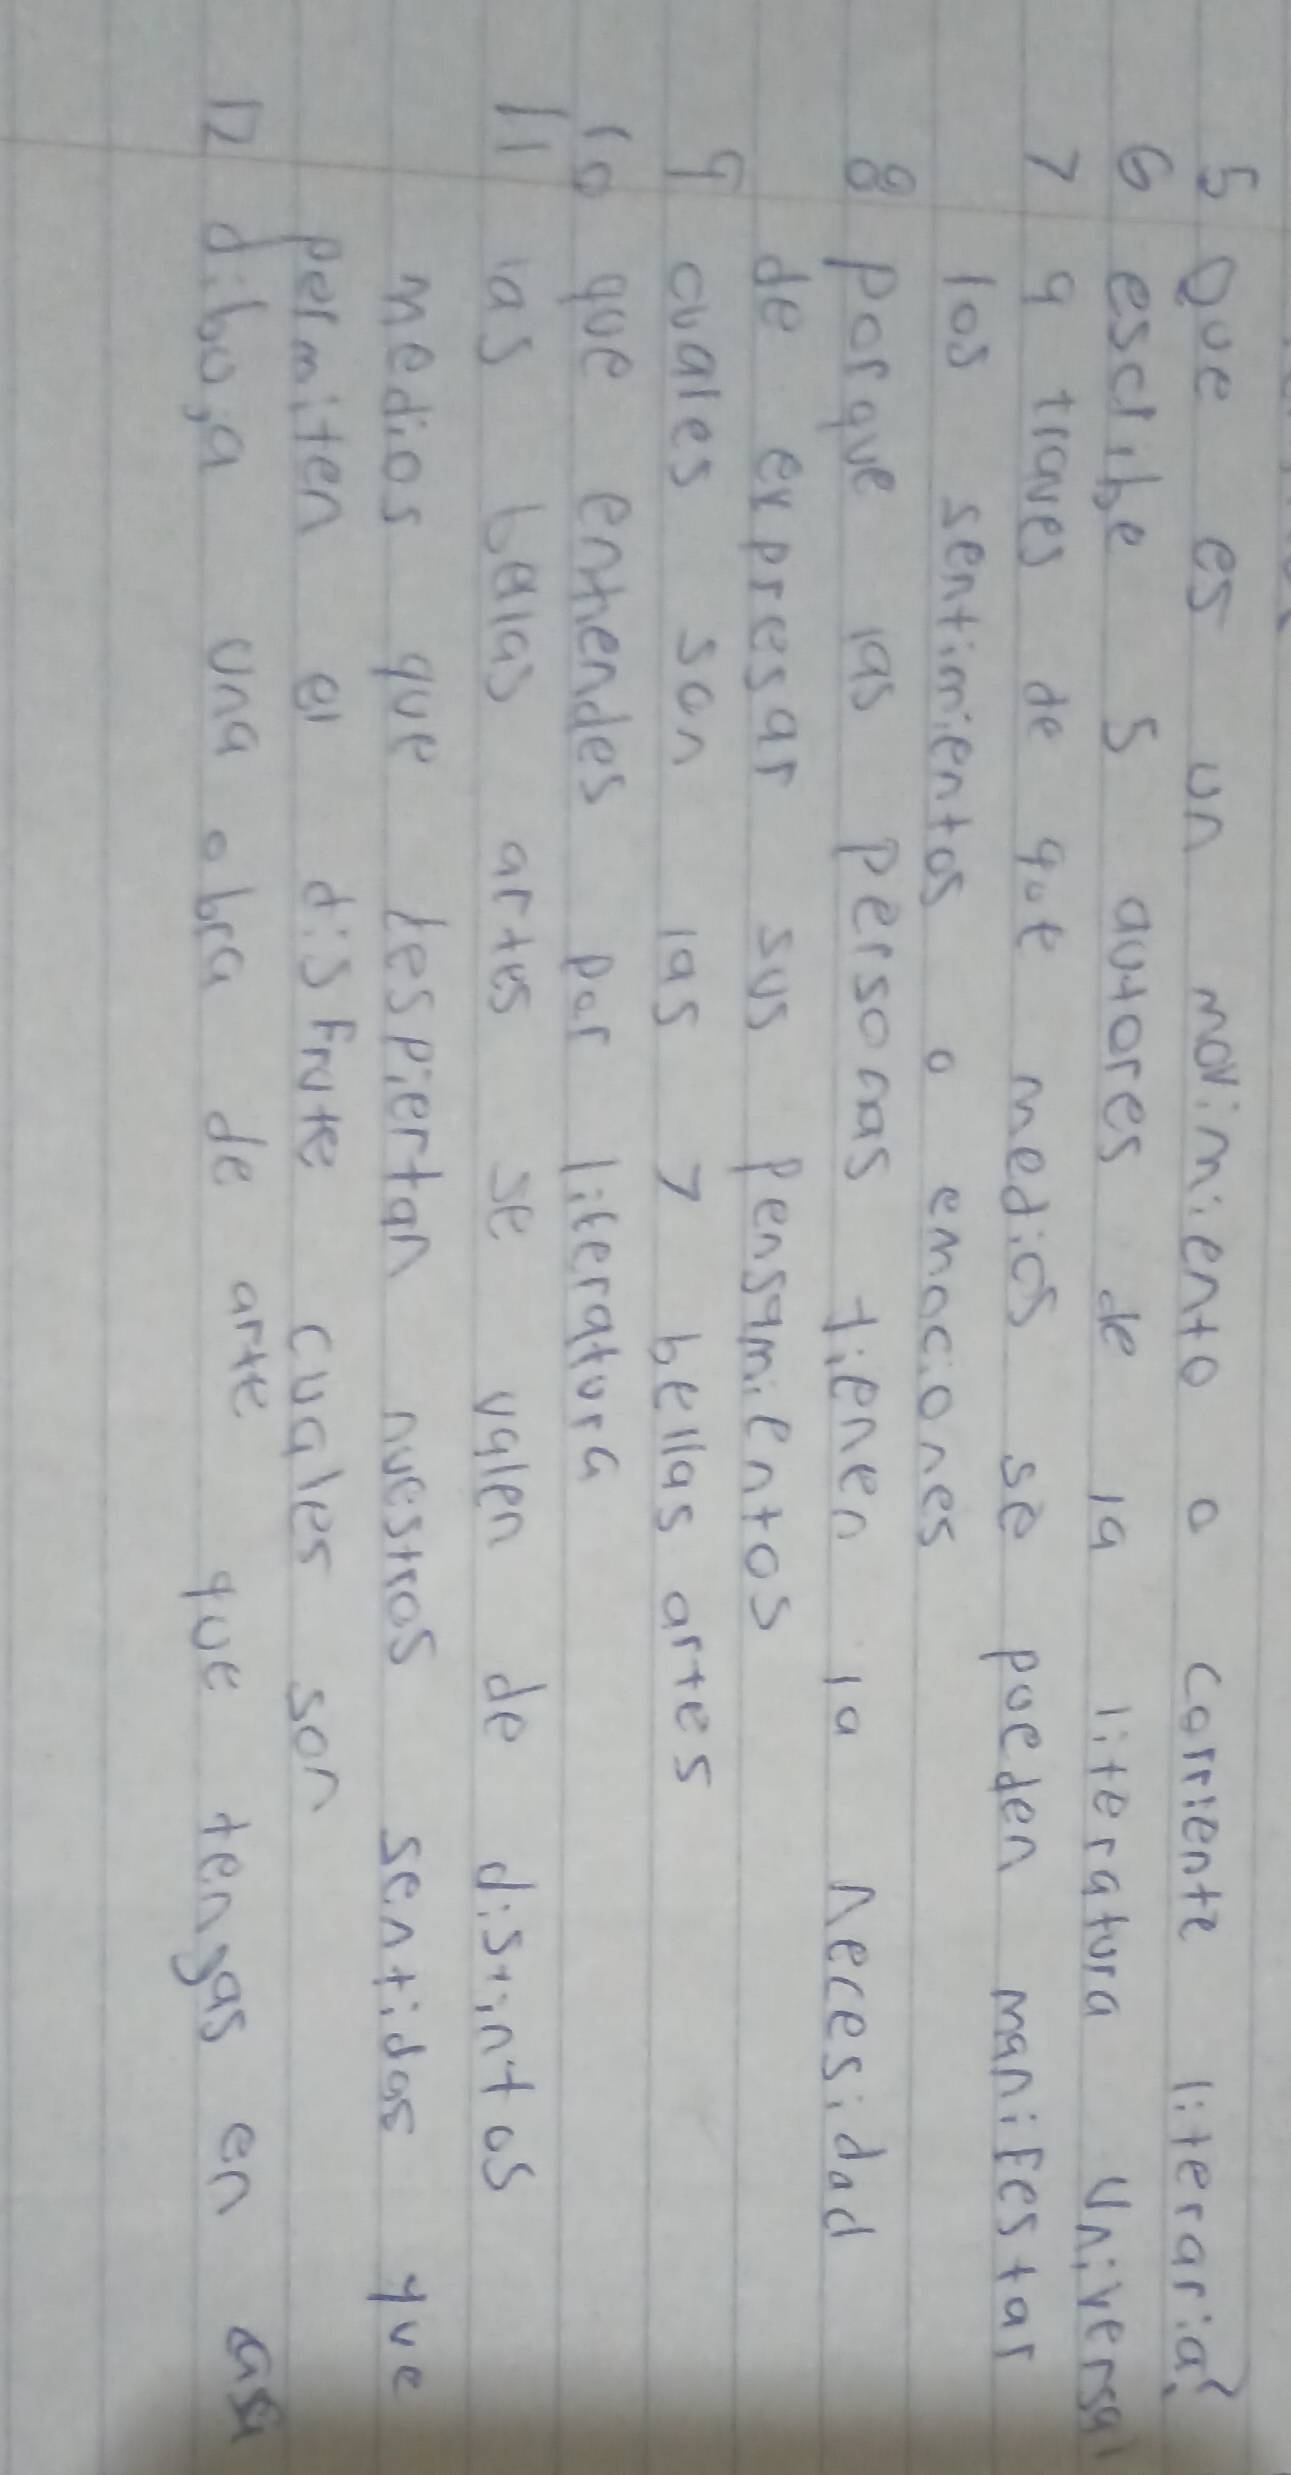 5 Que es un movimiento o corriente literaria?
6 escribe 5 autores de la literatura Universal
7 a traves de que medios se pueden manifestar
los sentimientos o emociones
8 porque las personas tienen la necesidad
de expresar sus pensamientos
9 cuales son las 7 bellas artes
10 que entiendes por literatura
11 las bellas artes se valen de distintos
medios que despiertan nuestros sentidos que
permiten el disfrute cuales son
12 dibuja una obra de arte que tengas en casa